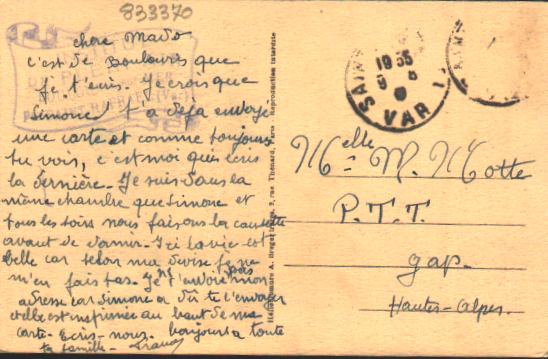 833370
chère Mado
c'est de Boulouris que
je t'écris. Je crois que
Simone t'a déjà envoyé
une carte et comme toujours
tu vois, c'est moi qui écris
la dernière. Je suis dans la
même chambre que Simone et
tous les soirs nous faisons la causette
avant de dormir. Ici la vie est
belle car selon ma devise je ne
m'en fais pas. Je n't'envoie pas mon
adresse car Simone a dû te l'envoyer
et elle est imprimée au haut de ma
carte. Ecris-nous. bonjours a toute
ta famille.
Héliogravure A. Breger frères, 9, rue Thénard, Paris Reproduction interdite
1935
VAR
Melle M. Motte
P.T.T.
gap.
Hautes-Alpes.